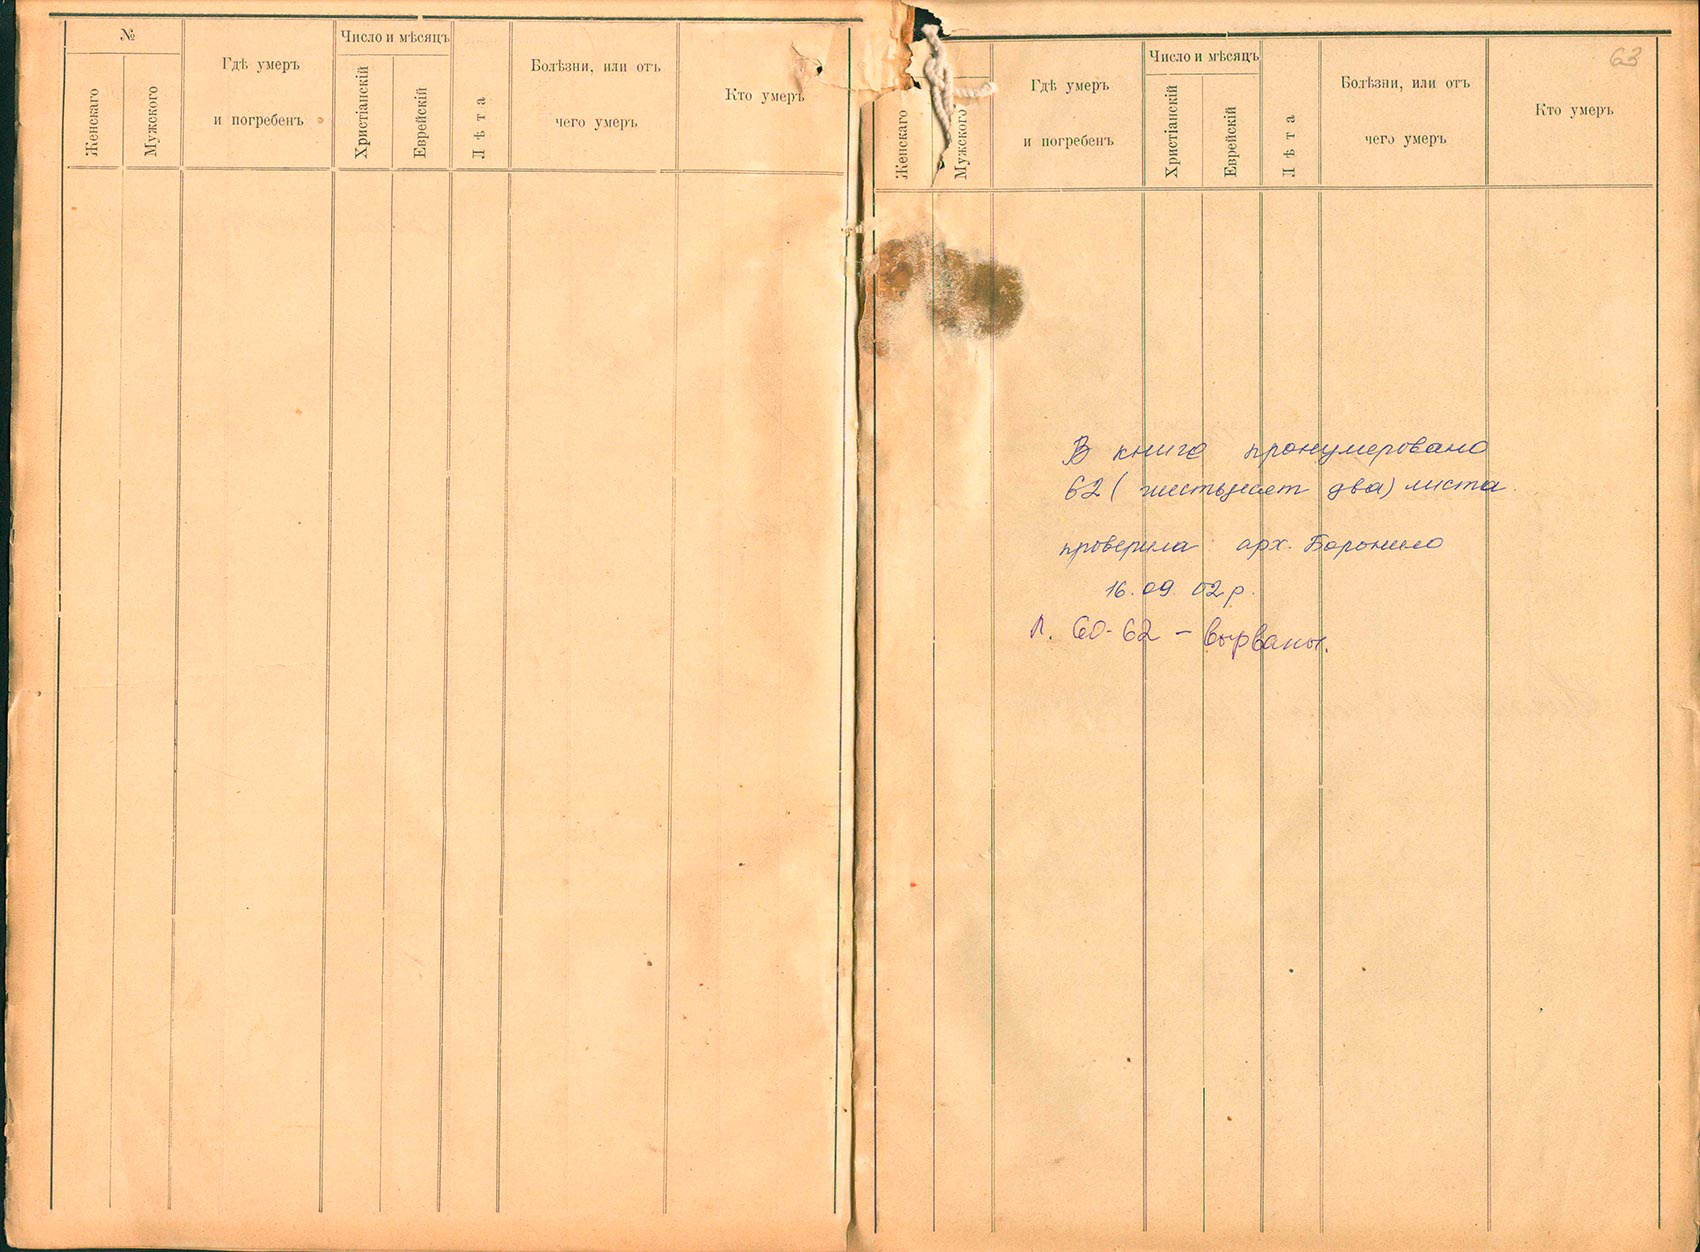 №
Женскаго
Мужского
Гдѣ умеръ
и погребенъ
Число и мѣсяцъ
Христіанскій
Еврейскій
Лѣта
Болѣзни, или отъ
чего умеръ
Кто умеръ
Женскаго
Мужского
Гдѣ умеръ
и погребенъ
Число и мѣсяцъ
Христіанскій
Еврейскій
Лѣта
Болѣзни, или отъ
чего умеръ
Кто умеръ
63
В книге пронумеровано
62 (шестьдесят два) листа.
проверила арх.
16.09.02 р.
Л. 60-62 – вырваны.